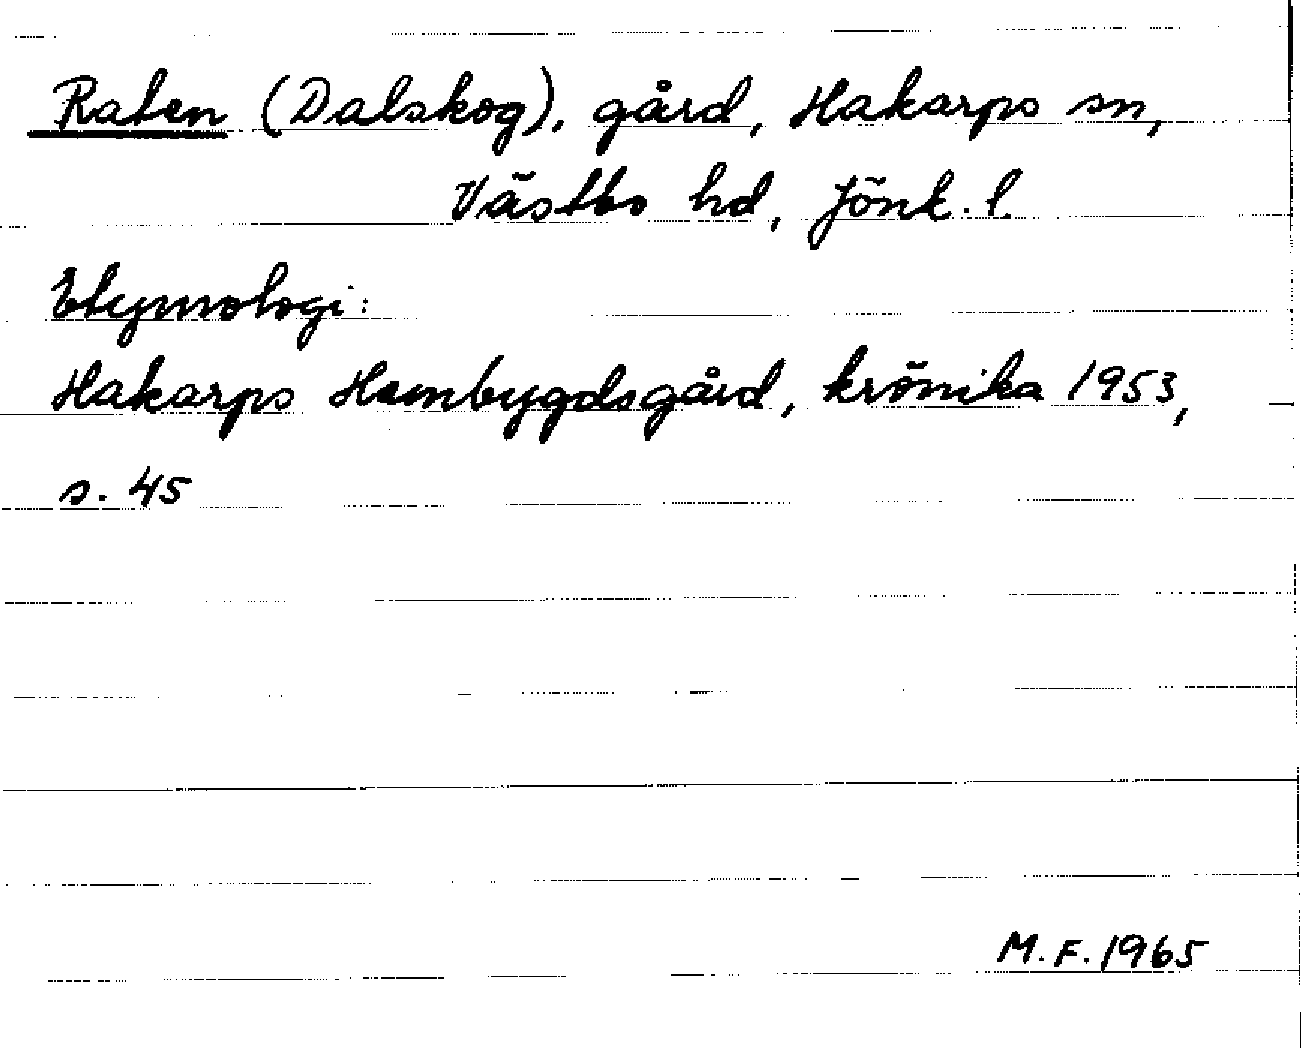 Raten (Dalskog), gård, Hakarps sn,
Västbo hd, Jönk. l.
Etymologi:
Hakarps Hembygdsgård, krönika 1953,
s. 45
M.F. 1965